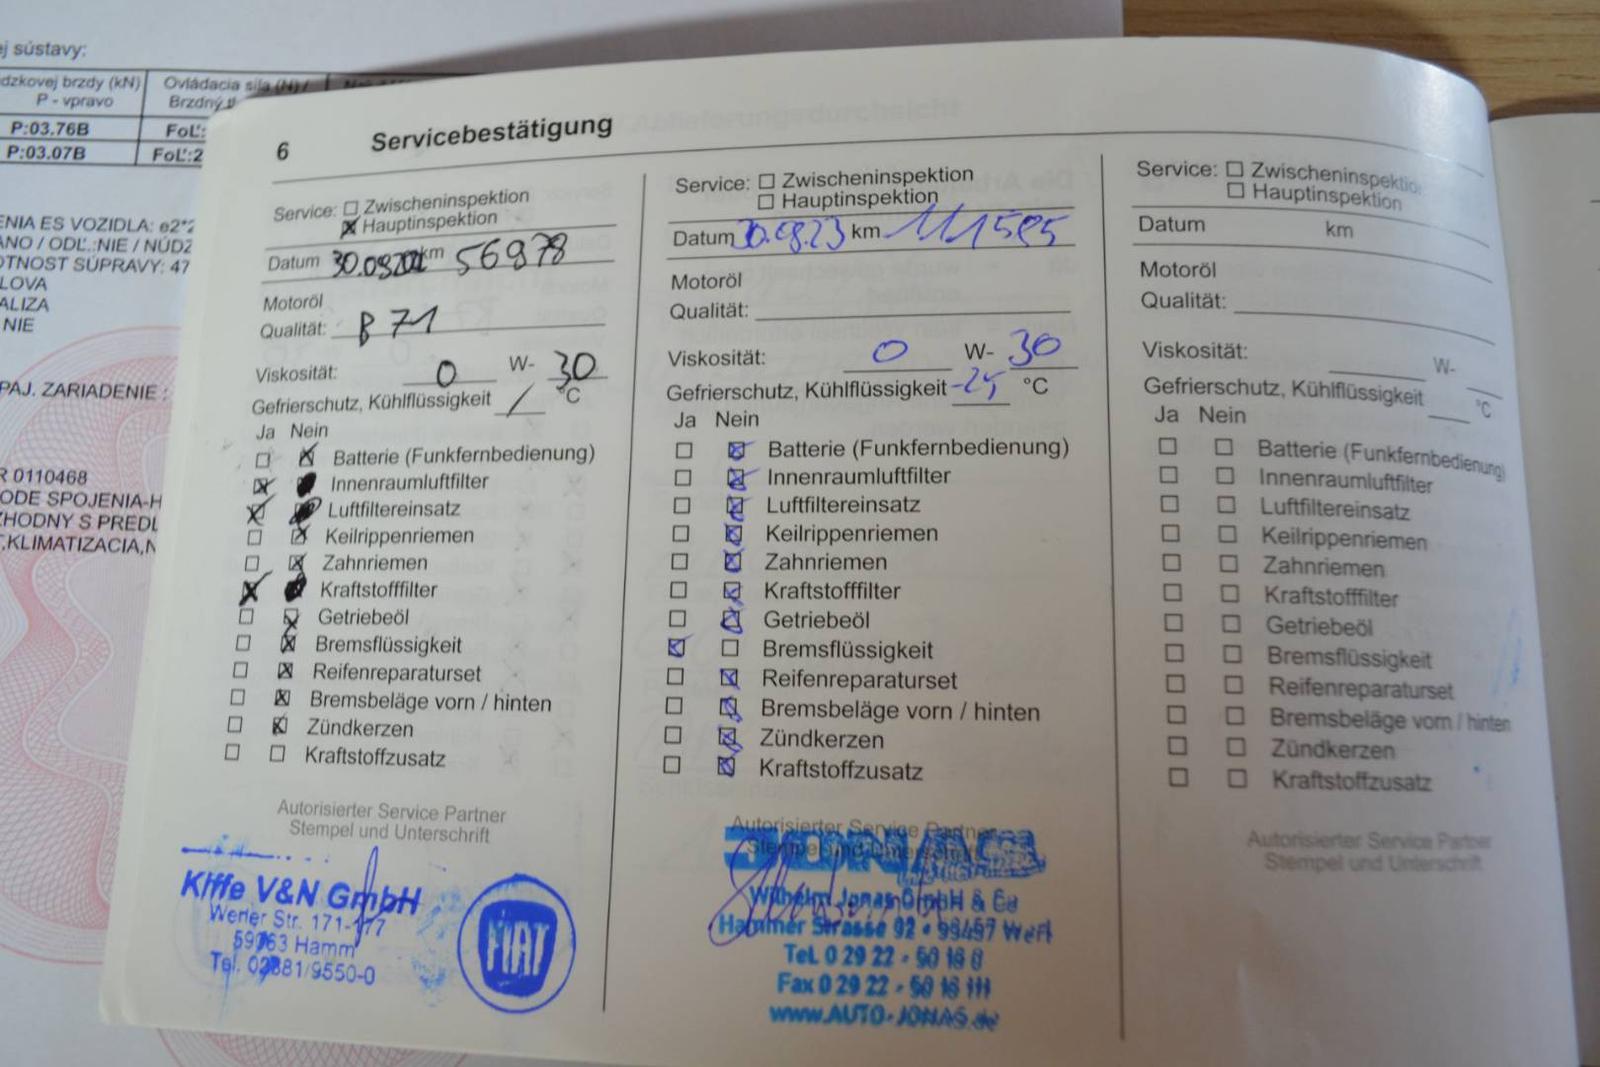 ej sústavy:
dzkovej brzdy (kN)
P - vpravo
Ovládacia sila (N) /
P:03.76B
FoĽ:
P:03.07B
FoĽ:2
ENIA ES VOZIDLA: e2*2
ANO / ODĽ.:NIE / NÚDZ
OTNOST SÚPRAVY: 47
LOVA
ALIZA
NIE
PAJ. ZARIADENIE :
R 0110468
ODE SPOJENIA-H
ZHODNY S PREDĽ
,KLIMATIZACIA,N
6
Servicebestätigung
Service: Zwischeninspektion
Hauptinspektion
Datum km 56978
Motoröl
Qualität: B 71
Viskosität: 0 W- 30
Gefrierschutz, Kühlflüssigkeit / °C
Ja Nein
Batterie (Funkfernbedienung)
Innenraumluftfilter
Luftfiltereinsatz
Keilrippenriemen
Zahnriemen
Kraftstofffilter
Getriebeöl
Bremsflüssigkeit
Reifenreparaturset
Bremsbeläge vorn / hinten
Zündkerzen
Kraftstoffzusatz
Autorisierter Service Partner
Stempel und Unterschrift
Kiffe V&N GmbH
Werler Str. 171-177
59063 Hamm
Tel. 02381/9550-0
FIAT
Service: Zwischeninspektion
Hauptinspektion
Datum km 111585
Motoröl
Qualität:
Viskosität: 0 W- 30
Gefrierschutz, Kühlflüssigkeit -25 °C
Ja Nein
Batterie (Funkfernbedienung)
Innenraumluftfilter
Luftfiltereinsatz
Keilrippenriemen
Zahnriemen
Kraftstofffilter
Getriebeöl
Bremsflüssigkeit
Reifenreparaturset
Bremsbeläge vorn / hinten
Zündkerzen
Kraftstoffzusatz
Autorisierter Service Partner
Stempel und Unterschrift
JONAS
Wilhelm Jonas GmbH & Co
Hammer Strasse 92 • 59457 Werl
Tel. 0 29 22 -
Fax 0 29 22 -
www.AUTO-JONAS.de
Service: Zwischeninspektion
Hauptinspektion
Datum km
Motoröl
Qualität:
Viskosität: W-
Gefrierschutz, Kühlflüssigkeit °C
Ja Nein
Batterie (Funkfernbedienung)
Innenraumluftfilter
Luftfiltereinsatz
Keilrippenriemen
Zahnriemen
Kraftstofffilter
Getriebeöl
Bremsflüssigkeit
Reifenreparaturset
Bremsbeläge vorn / hinten
Zündkerzen
Kraftstoffzusatz
Autorisierter Service Partner
Stempel und Unterschrift